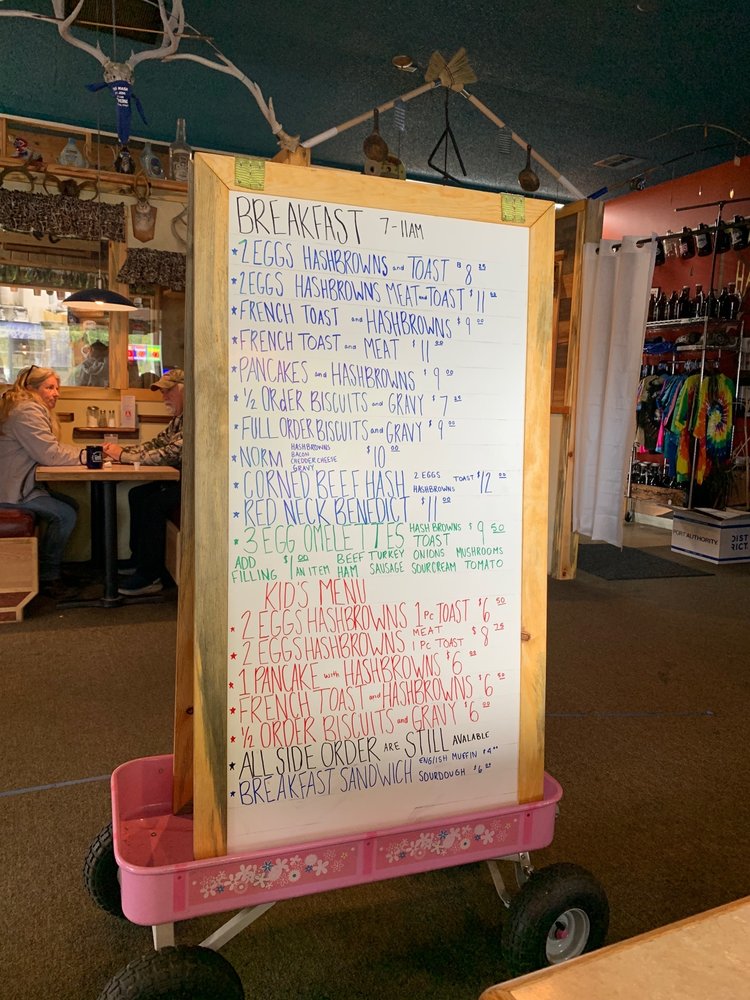 BREAKFAST 7-11AM
* 2 EGGS HASHBROWNS and TOAST $8
* 2 EGGS HASHBROWNS MEAT and TOAST $11
* FRENCH TOAST and HASHBROWNS $9 00
* FRENCH TOAST and MEAT $11 00
* PANCAKES and HASHBROWNS $9 00
* 1/2 ORDER BISCUITS and GRAVY $7
* FULL ORDER BISCUITS and GRAVY $9 00
* NORM HASHBROWNS BACON CHEDDER CHEESE GRAVY $10 00
* CORNED BEEF HASH 2 EGGS HASHBROWNS TOAST $12 00
* RED NECK BENEDICT $11 00
* 3 EGG OMELETTES HASHBROWNS TOAST $9 50
ADD FILLING $1 00 AN ITEM BEEF TURKEY ONIONS MUSHROOMS
HAM SAUSAGE SOURCREAM TOMATO
KID'S MENU
* 2 EGGS HASHBROWNS 1 PC TOAST $6 50
* 2 EGGS HASHBROWNS MEAT 1 PC TOAST $8 75
* 1 PANCAKE with HASHBROWNS $6 00
* FRENCH TOAST and HASHBROWNS $6 50
* 1/2 ORDER BISCUITS and GRAVY $6 00
* ALL SIDE ORDER ARE STILL AVALABLE
* BREAKFAST SANDWICH ENGLISH MUFFIN $4 00
SOURDOUGH $6 00
PORT AUTHORITY
DIST
RICT